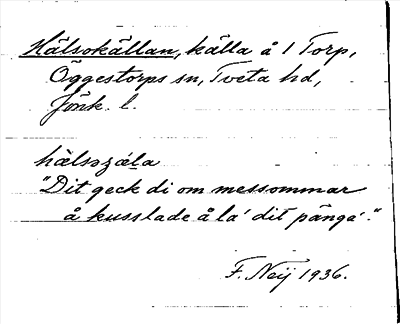 Hälsokällan, källa å 1 Torp,
Öggestorps sn, Tveta hd,
Jönk. l.
hälsəʒála
"Dit geck di om messommar
å kusslade å la' dit pänga'."
F. Neij 1936.